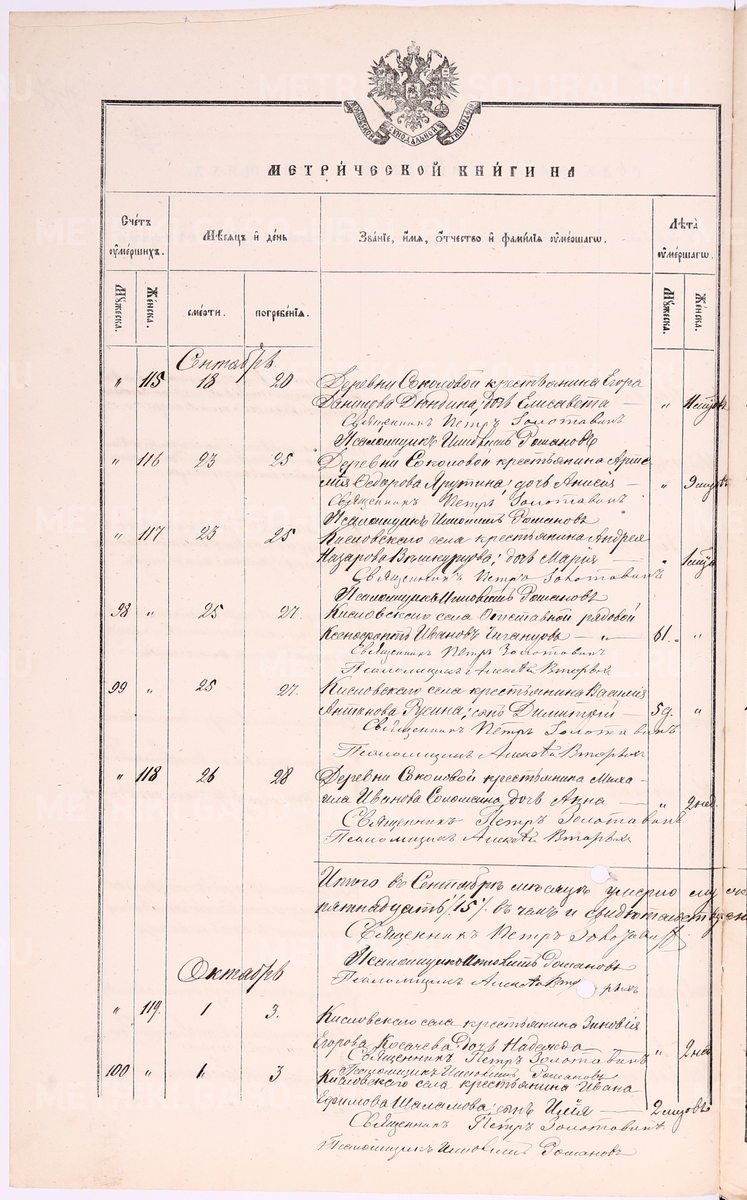 МЕТРИ́ЧЕСКОЙ КНИ́ГИ НА
Сче́тъ ᲂумéршихъ.
Мѣ́сяцъ и де́нь
Зва́нїе, и́мя, ѻ́тчество и фами́лїя ᲂумéршагѡ.
Лѣта̀ ᲂумéршагѡ.
Мꙋ́жеска.
Же́нска.
сме́рти.
погребе́нїѧ.
Мꙋ́жеска.
Же́нска.
Сентябрь
" 115 18 20 Деревни Соколовой крестьянина Егора
дочь Елисавета — "
Священникъ Петръ Золотавинъ
Псаломщикъ Романовъ
" 116 23 25 Деревни Соколовой крестьянина Арте-
мія Ѳедорова Ярутина, дочь Анисія — " 9
Священникъ Петръ Золотавинъ
Псаломщикъ Романовъ
" 117 23 25 Кисловскаго села крестьянина Андрея
Назарова дочь Марія — "
Священникъ Петръ Золотавинъ
Псаломщикъ Романовъ
98 " 25 27. Кисловскаго села Отставной рядовой
Ксенофонтъ Ивановъ — " — 61. "
Священникъ Петръ Золотавинъ
Псаломщикъ Алексѣй Вторыхъ
99 " 25 27. Кисловскаго села крестьянина Василія
Русина, сынъ Димитрій — "
Священникъ Петръ Золотавинъ
Псаломщикъ Алексѣй Вторыхъ
" 118 26 28 Деревни Соколовой крестьянина Миха-
ила Иванова дочь Анна — " 2 нед.
Священникъ Петръ Золотавинъ
Псаломщикъ Алексѣй Вторыхъ
Итого въ Сентябрѣ мѣсяцѣ умерло
пятнадцать /15/. въ чемъ и
Священникъ Петръ
Псаломщикъ Романовъ
Псаломщикъ Алексѣй
Октябрь
" 119. 1 3. Кисловскаго села крестьянина Зиновія
Егорова Косачева дочь Надежда " 2
Священникъ Петръ Золотавинъ
Псаломщикъ Романовъ
100 " 1 3 Кисловскаго села крестьянина Ивана
Ефимова Шаламова, сынъ Илія — 2
Священникъ Петръ Золотавинъ
Псаломщикъ Романовъ